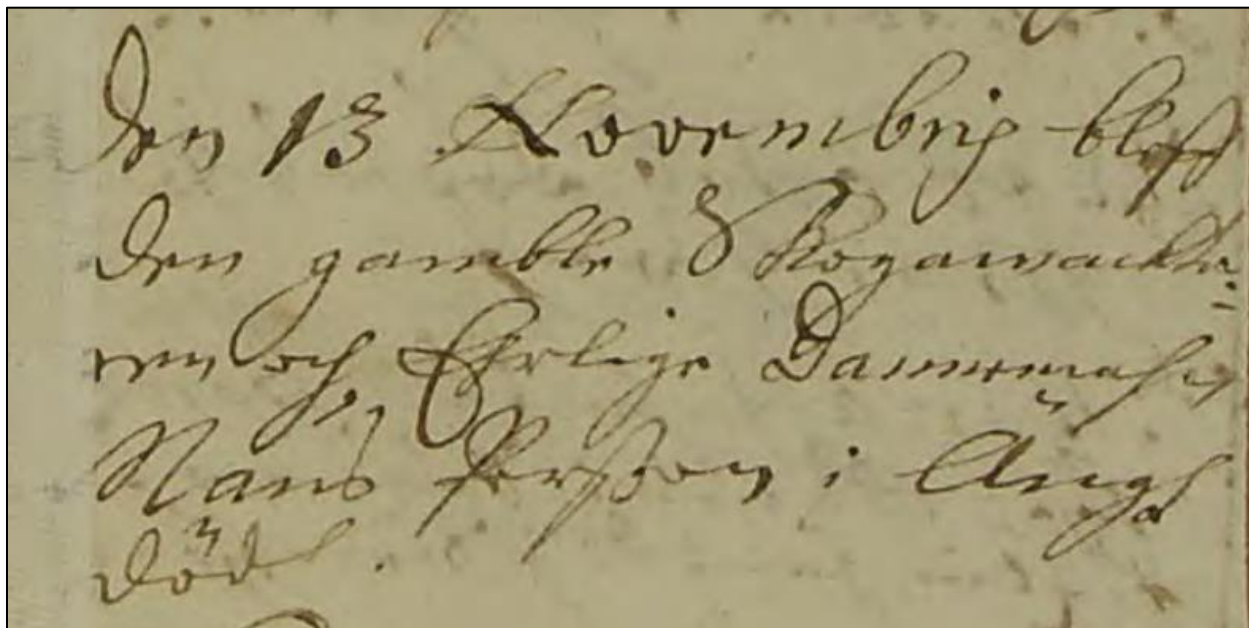 Den 13 Novembris bleff
den gamble Skogawackta:
ren och Ehrlige Dannemahn
Måns Perßon i Ängh
död.